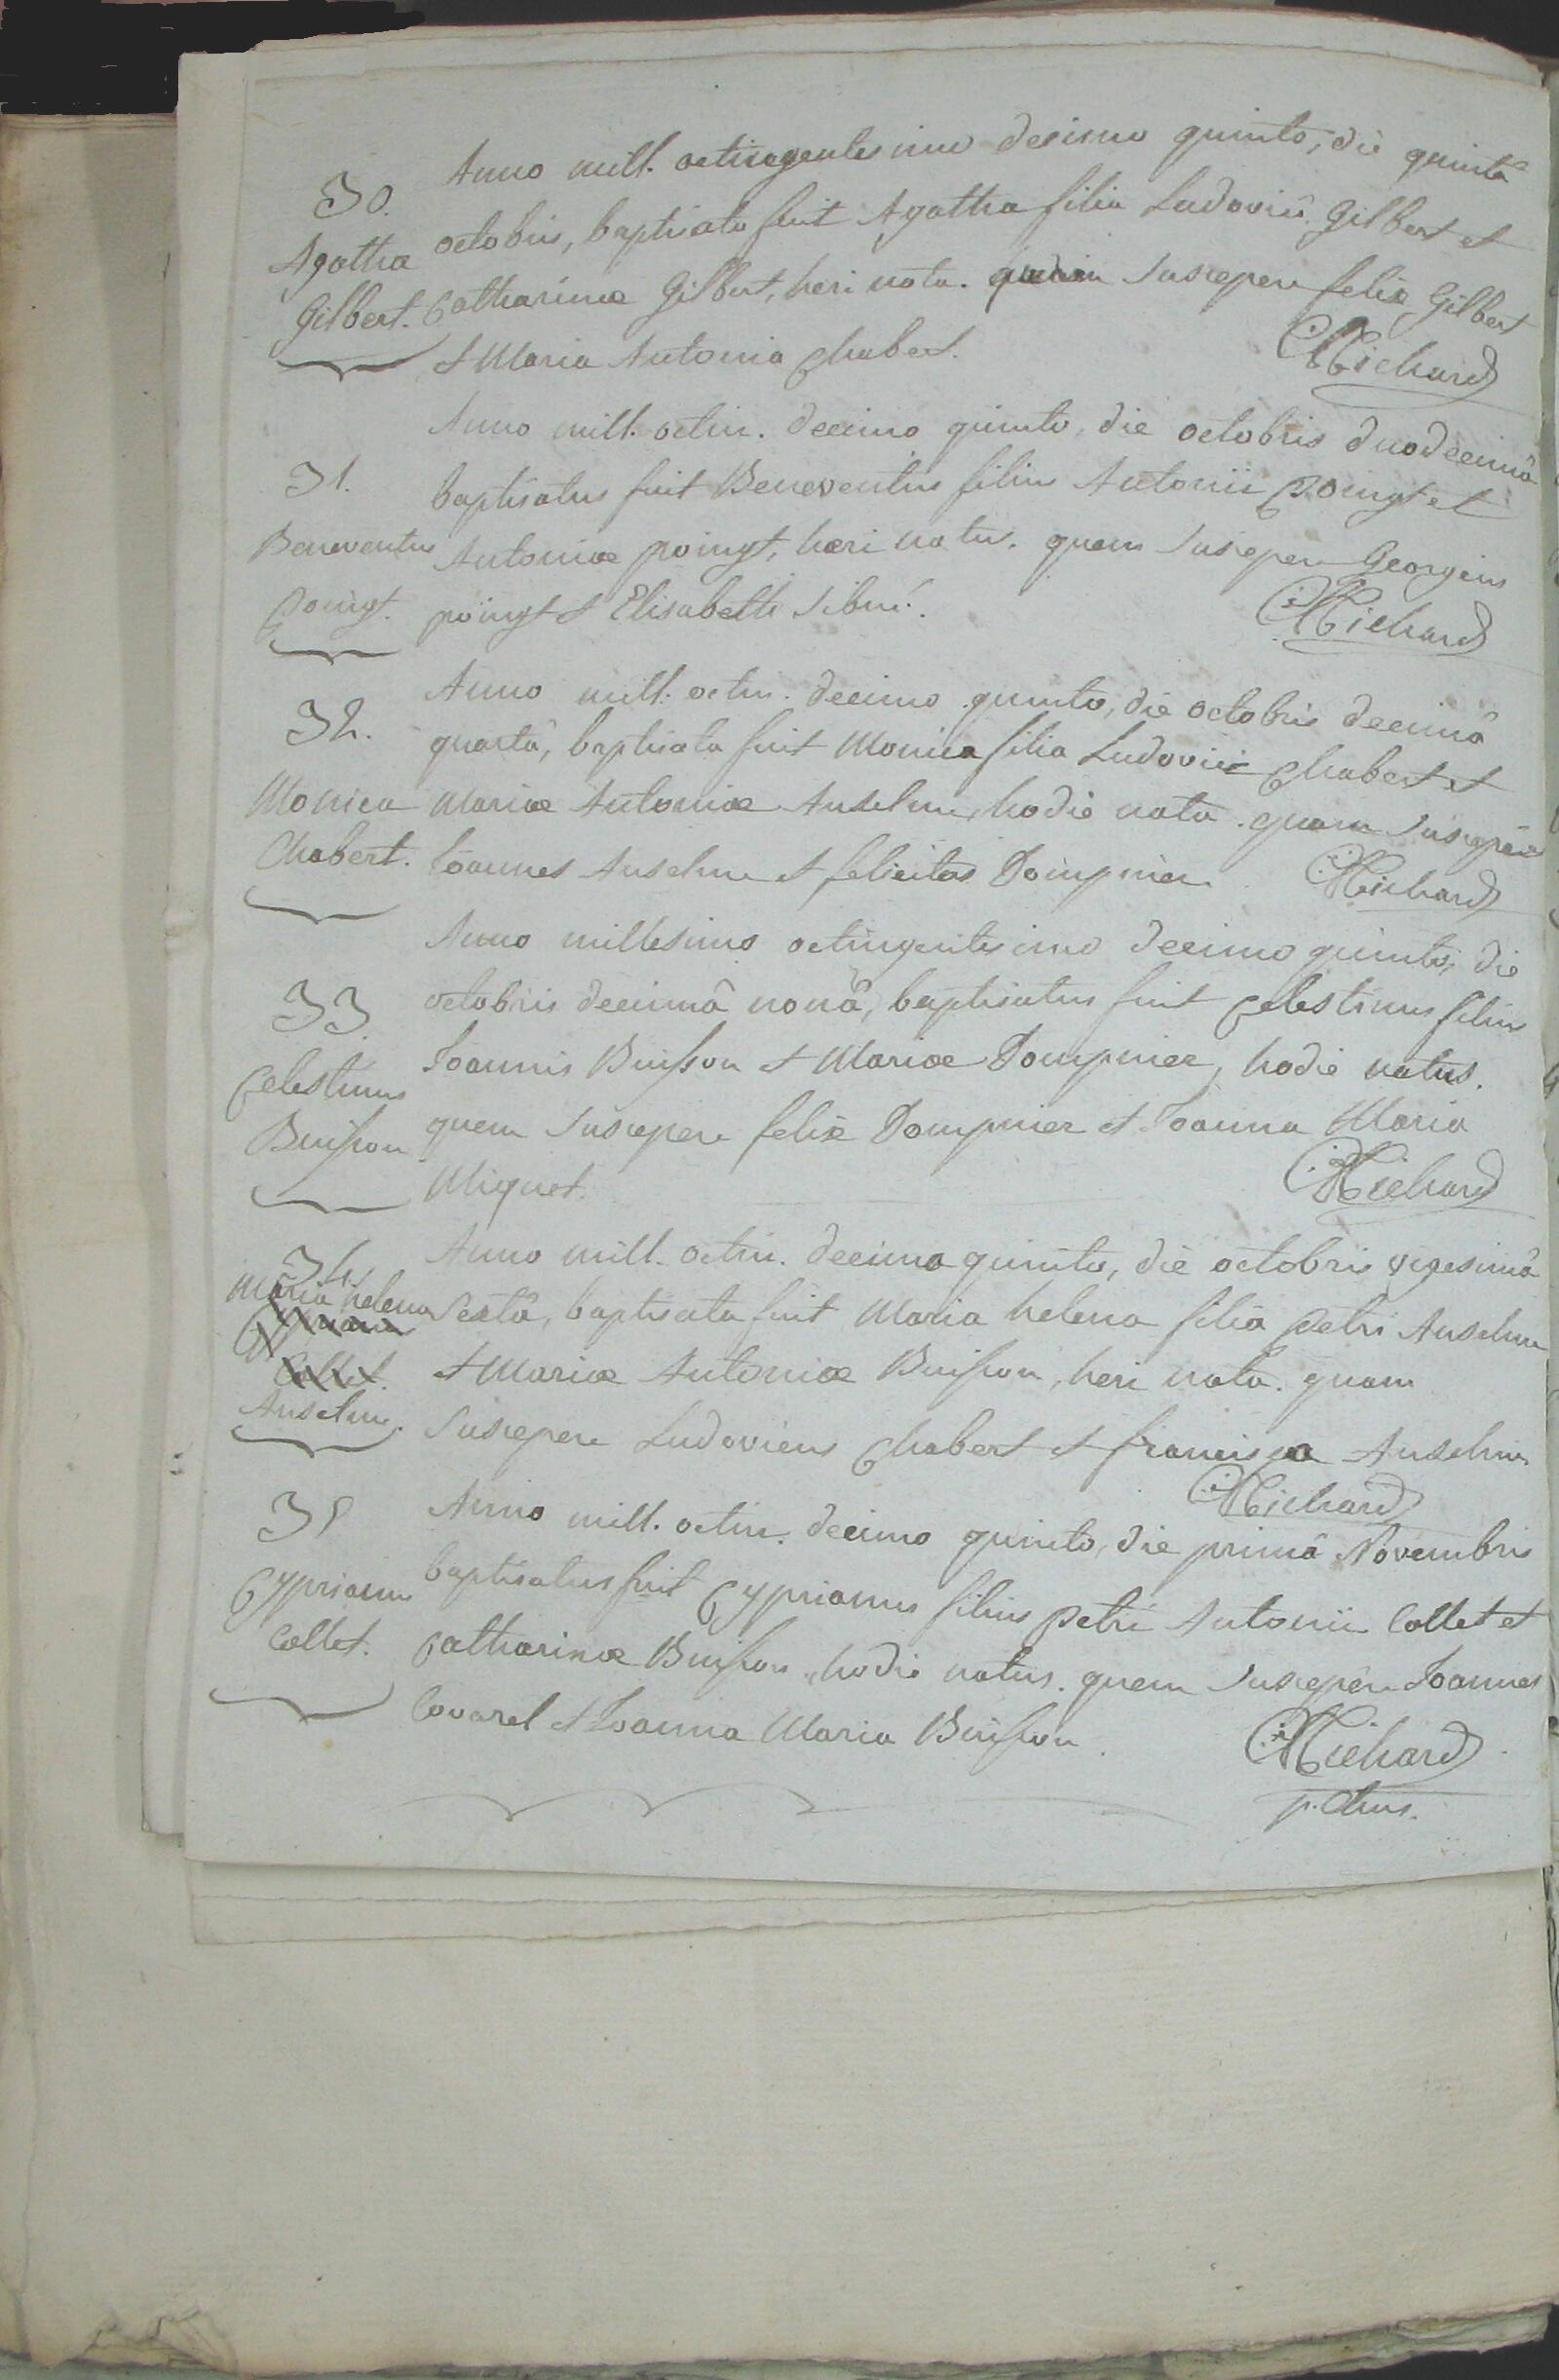 30.
Agatha
Gilbert.
Anno mill. octingentesimo decimo quinto, die quintâ
octobris, baptisata fuit Agatha filia Ludovici Gilbert et
Catharinæ Gilbert, heri nata. quam suscepere felix Gilbert
et Maria Antonia Chabert.
Michard
31.
Beneventus
Poingt.
Anno mill. octin. decimo quinto, die octobris duodecimâ
baptisatus fuit Beneventus filius Antonii Poingt et
Antoniæ poingt, heri natus. quem suscepere Georgius
poingt et Elisabeth Sibué.
Michard
32.
Monica
Chabert.
Anno mill. octin. decimo quinto, die octobris decimâ
quartâ, baptisata fuit Monica filia Ludovici Chabert et
Mariæ Antoniæ Anselme, hodie nata. quam suscepêre
Joannes Anselme et felicitas Dompnier.
Michard
33.
Celestinus
Buisson
Anno millesimo octingentesimo decimo quinto, die
octobris decimâ nonâ, baptisatus fuit Celestinus filius
Joannis Buisson et Mariæ Dompnier, hodie natus.
quem suscepere felix Dompnier et Joanna Maria
Miquet.
Michard
34.
Maria helena
Collet.
Anselme.
Anno mill. octin. decimo quinto, die octobris vigesimâ
sextâ, baptisata fuit Maria helena filia Petri Anselme
et Mariæ Antoniæ Buisson, heri nata. quam
suscepere Ludovicus Chabert et francisca Anselme
Michard
35
Cyprianus
Collet.
Anno mill. octin. decimo quinto, die primâ Novembris
baptisatus fuit Cyprianus filius Petri Antonii Collet et
Catharinæ Buisson, hodie natus. quem suscepêre Joannes
Covarel et Joanna Maria Buisson.
Michard